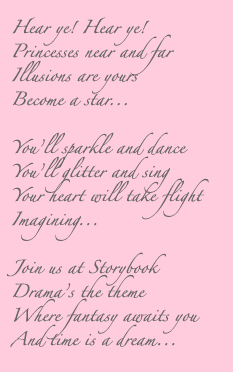 Hear ye! Hear ye!
Princesses near and far
Illusions are yours
Become a star...
You'll sparkle and dance
You'll glitter and sing
Your heart will take flight
Imagining...
Join us at Storybook
Drama's the theme
Where fantasy awaits you
And time is a dream...